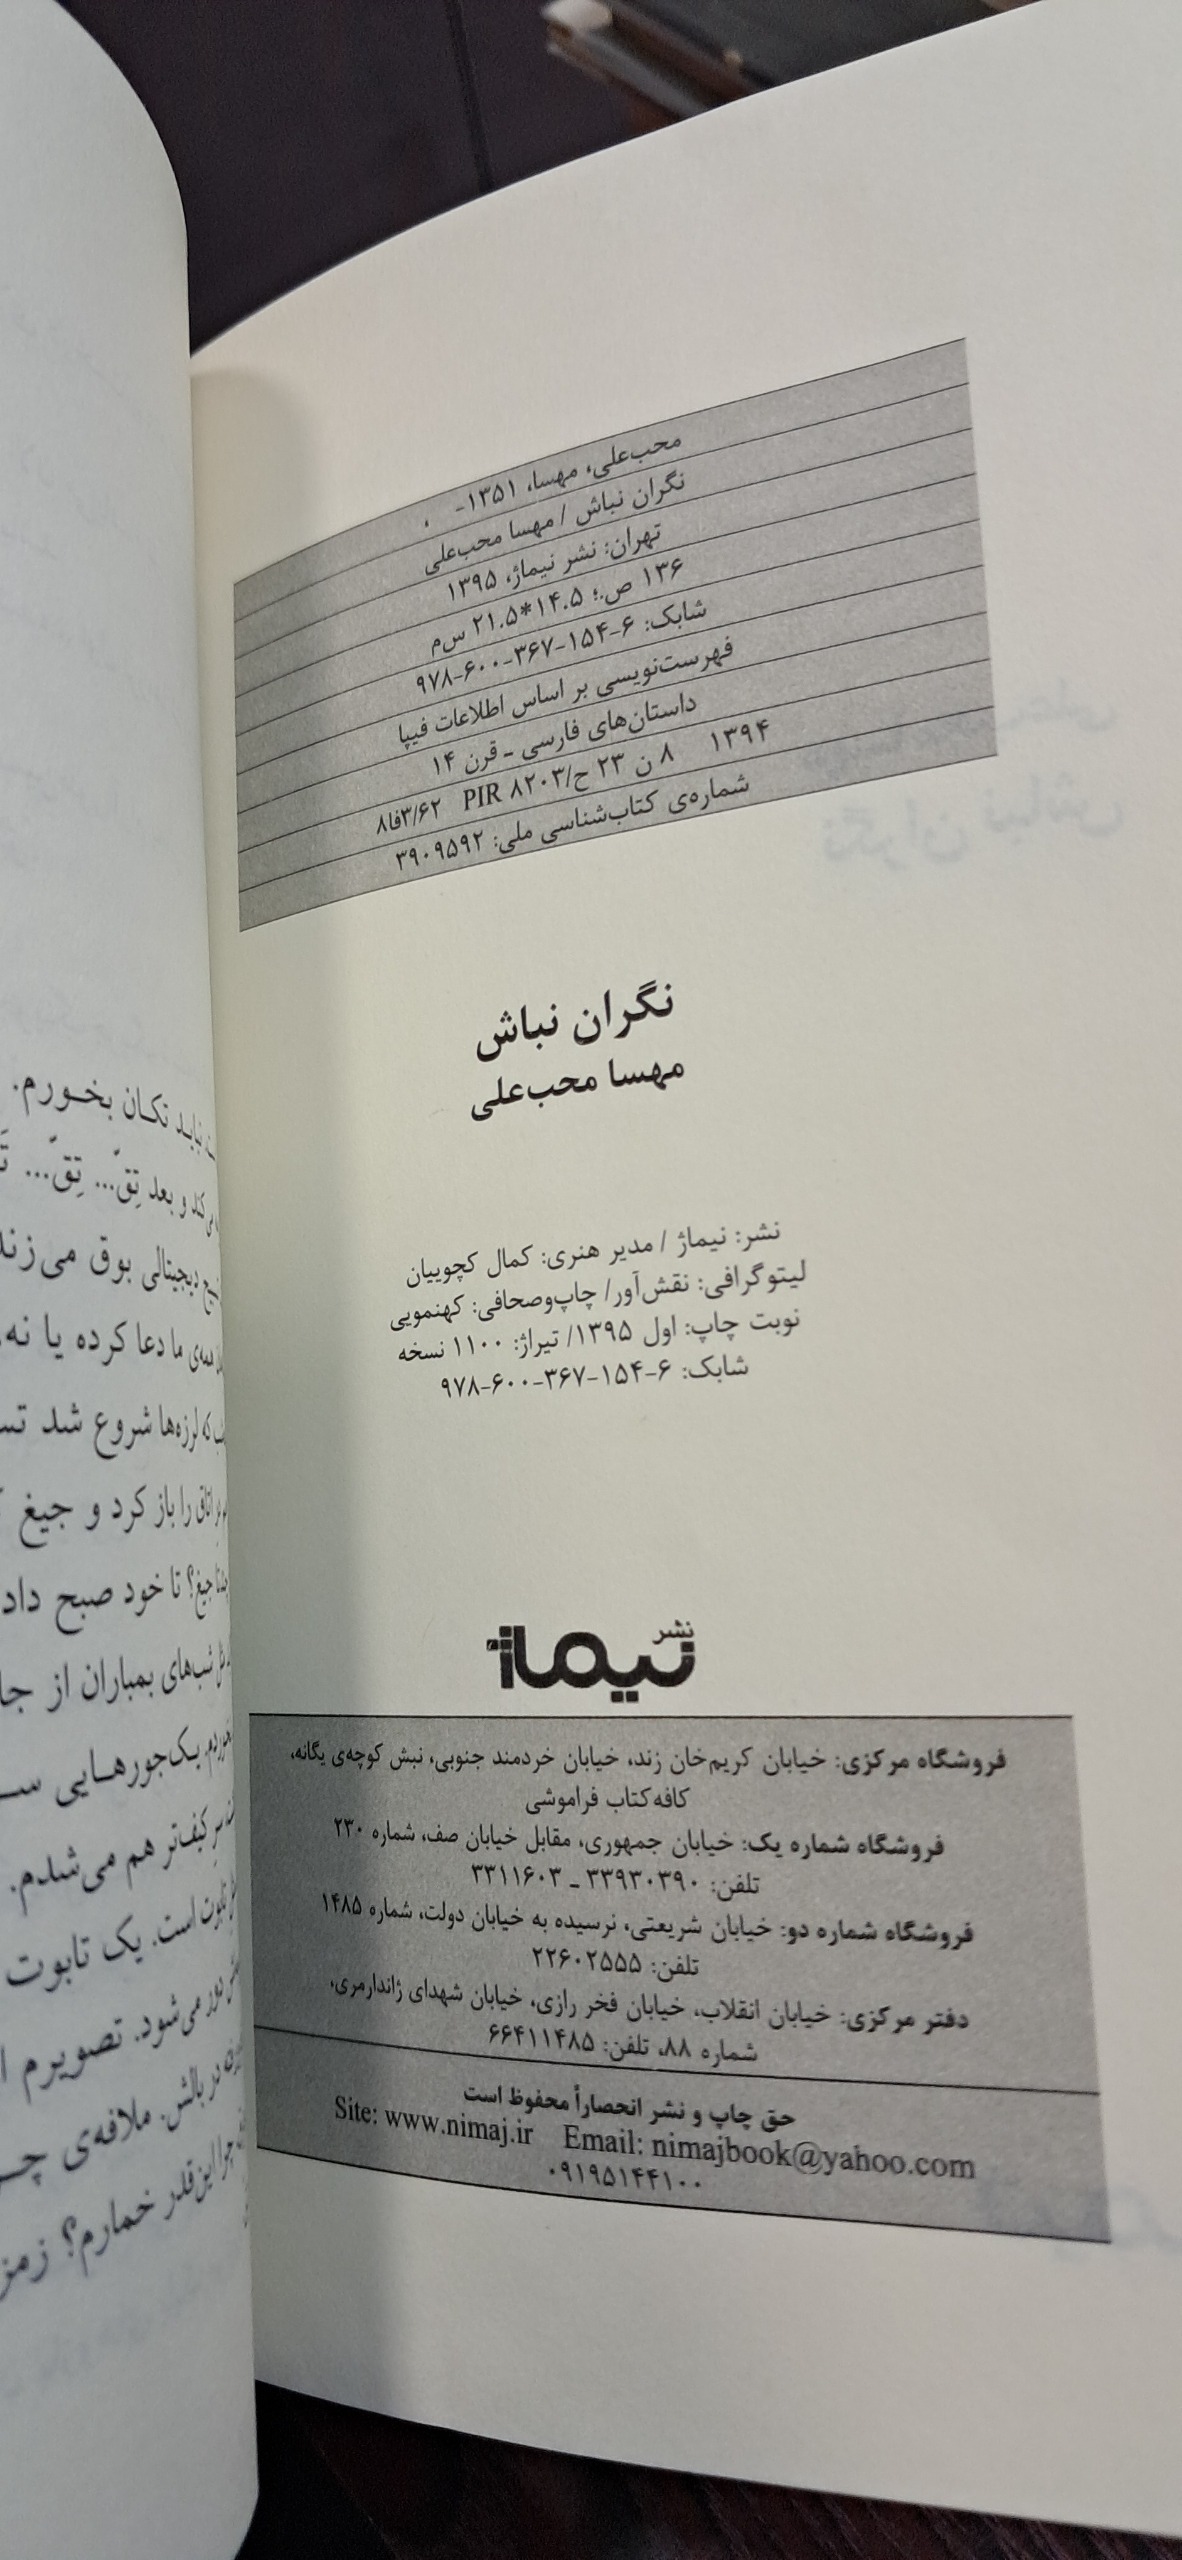 محب‌علی، مهسا، ۱۳۵۱-
نگران نباش / مهسا محب‌علی
تهران: نشر نیماژ، ۱۳۹۵
۱۳۶ ص.؛ ۱۴.۵*۲۱.۵ س‌م
شابک: ۶-۱۵۴-۳۶۷-۶۰۰-۹۷۸
فهرست‌نویسی بر اساس اطلاعات فیپا
داستان‌های فارسی - قرن ۱۴
۱۳۹۴ ۸ ن ۲۳ ح/PIR ۸۲۰۳ ۸فا۳/۶۲
شماره‌ی کتاب‌شناسی ملی: ۳۹۰۹۵۹۲
نگران نباش
مهسا محب‌علی
نشر: نیماژ / مدیر هنری: کمال کچوییان
لیتوگرافی: نقش‌آور/ چاپ‌وصحافی: کهنمویی
نوبت چاپ: اول ۱۳۹۵/ تیراژ: ۱۱۰۰ نسخه
شابک: ۶-۱۵۴-۳۶۷-۶۰۰-۹۷۸
نشر
نیماژ
فروشگاه مرکزی: خیابان کریم‌خان زند، خیابان خردمند جنوبی، نبش کوچه‌ی یگانه،
کافه‌کتاب فراموشی
فروشگاه شماره یک: خیابان جمهوری، مقابل خیابان صف، شماره ۲۳۰
تلفن: ۳۳۹۳۰۳۹۰ ـ ۳۳۱۱۶۰۳
فروشگاه شماره دو: خیابان شریعتی، نرسیده به خیابان دولت، شماره ۱۴۸۵
تلفن: ۲۲۶۰۲۵۵۵
دفتر مرکزی: خیابان انقلاب، خیابان فخر رازی، خیابان شهدای ژاندارمری،
شماره ۸۸، تلفن: ۶۶۴۱۱۴۸۵
حق چاپ و نشر انحصاراً محفوظ است
Site: www.nimaj.ir Email: nimajbook@yahoo.com
۰۹۱۹۵۱۴۴۱۰۰
نباید تکان بخورم.
و بعد تِقّ... تِقّ...
دیجیتالی بوق می‌زند
همه‌ی ما دعا کرده یا نه
که لرزه‌ها شروع شد
اتاق را باز کرد و جیغ
جیغ؟ تا خود صبح داد
شب‌های بمباران از
یک‌جورهایی
کیف‌تر هم می‌شدم.
تابوت است. یک تابوت
دور می‌شود. تصویرم
در بالش. ملافه‌ی
چرا این‌قدر خمارم؟